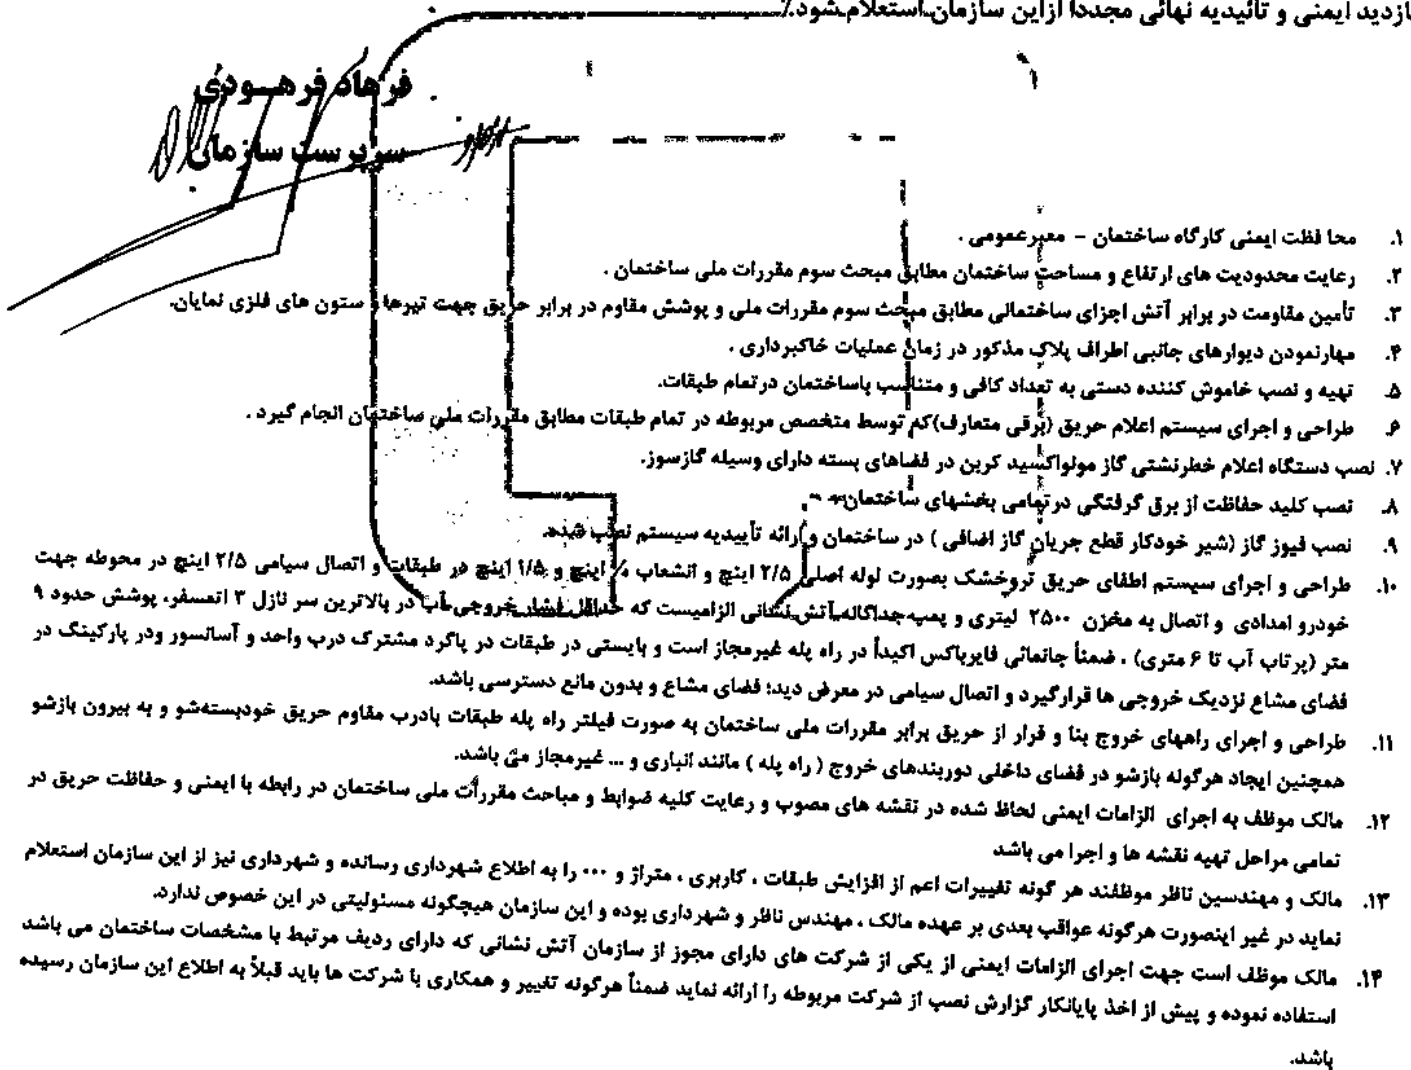 بازدید ایمنی و تائیدیه نهائی مجددا ازاین سازمان استعلام شود٪
فرهاد فرهودی
سرپرست سازمان
۱. محا فظت ایمنی کارگاه ساختمان – معبرعمومی .
۲. رعایت محدودیت های ارتفاع و مساحت ساختمان مطابق مبحث سوم مقررات ملی ساختمان .
۳. تأمین مقاومت در برابر آتش اجزای ساختمانی مطابق مبحث سوم مقررات ملی و پوشش مقاوم در برابر حریق جهت تیرها و ستون های فلزی نمایان.
۴. مهارنمودن دیوارهای جانبی اطراف پلاک مذکور در زمان عملیات خاکبرداری .
۵. تهیه و نصب خاموش کننده دستی به تعداد کافی و متناسب باساختمان درتمام طبقات.
۶. طراحی و اجرای سیستم اعلام حریق (برقی متعارف)که توسط متخصص مربوطه در تمام طبقات مطابق مقررات ملی ساختمان انجام گیرد .
۷. نصب دستگاه اعلام خطرنشتی گاز مونواکسید کربن در فضاهای بسته دارای وسیله گازسوز.
۸. نصب کلید حفاظت از برق گرفتگی درتمامی بخشهای ساختمان
۹. نصب فیوز گاز (شیر خودکار قطع جریان گاز اضافی ) در ساختمان و ارائه تأییدیه سیستم نصب شده.
۱۰. طراحی و اجرای سیستم اطفای حریق تروخشک بصورت لوله اصلی ۲/۵ اینچ و انشعاب اینچ و ۱/۵ اینچ در طبقات و اتصال سیامی ۲/۵ اینچ در محوطه جهت
خودرو امدادی و اتصال به مخزن ۲۵۰۰ لیتری و پمپ جداگانه آتش نشانی الزامیست که حداقل فشار خروجی آب در بالاترین سر نازل ۳ اتمسفر، پوشش حدود ۹
متر (پرتاب آب تا ۶ متری) . ضمناً جانمائی فایرباکس اکیداً در راه پله غیرمجاز است و بایستی در طبقات در پاگرد مشترک درب واحد و آسانسور ودر پارکینگ در
فضای مشاع نزدیک خروجی ها قرارگیرد و اتصال سیامی در معرض دید؛ فضای مشاع و بدون مانع دسترسی باشد.
۱۱. طراحی و اجرای راههای خروج بنا و فرار از حریق برابر مقررات ملی ساختمان به صورت فیلتر راه پله طبقات بادرب مقاوم حریق خودبسته‌شو و به بیرون بازشو
همچنین ایجاد هرگونه بازشو در فضای داخلی دوربندهای خروج ( راه پله ) مانند انباری و ... غیرمجاز می باشد.
۱۲. مالک موظف به اجرای الزامات ایمنی لحاظ شده در نقشه های مصوب و رعایت کلیه ضوابط و مباحث مقررات ملی ساختمان در رابطه با ایمنی و حفاظت حریق در
تمامی مراحل تهیه نقشه ها و اجرا می باشد
۱۳. مالک و مهندسین ناظر موظفند هر گونه تغییرات اعم از افزایش طبقات ، کاربری ، متراژ و ... را به اطلاع شهرداری رسانده و شهرداری نیز از این سازمان استعلام
نماید در غیر اینصورت هرگونه عواقب بعدی بر عهده مالک ، مهندس ناظر و شهرداری بوده و این سازمان هیچگونه مسئولیتی در این خصوص ندارد.
۱۴. مالک موظف است جهت اجرای الزامات ایمنی از یکی از شرکت های دارای مجوز از سازمان آتش نشانی که دارای ردیف مرتبط با مشخصات ساختمان می باشد
استفاده نموده و پیش از اخذ پایانکار گزارش نصب از شرکت مربوطه را ارائه نماید ضمناً هرگونه تغییر و همکاری با شرکت ها باید قبلاً به اطلاع این سازمان رسیده
باشد.